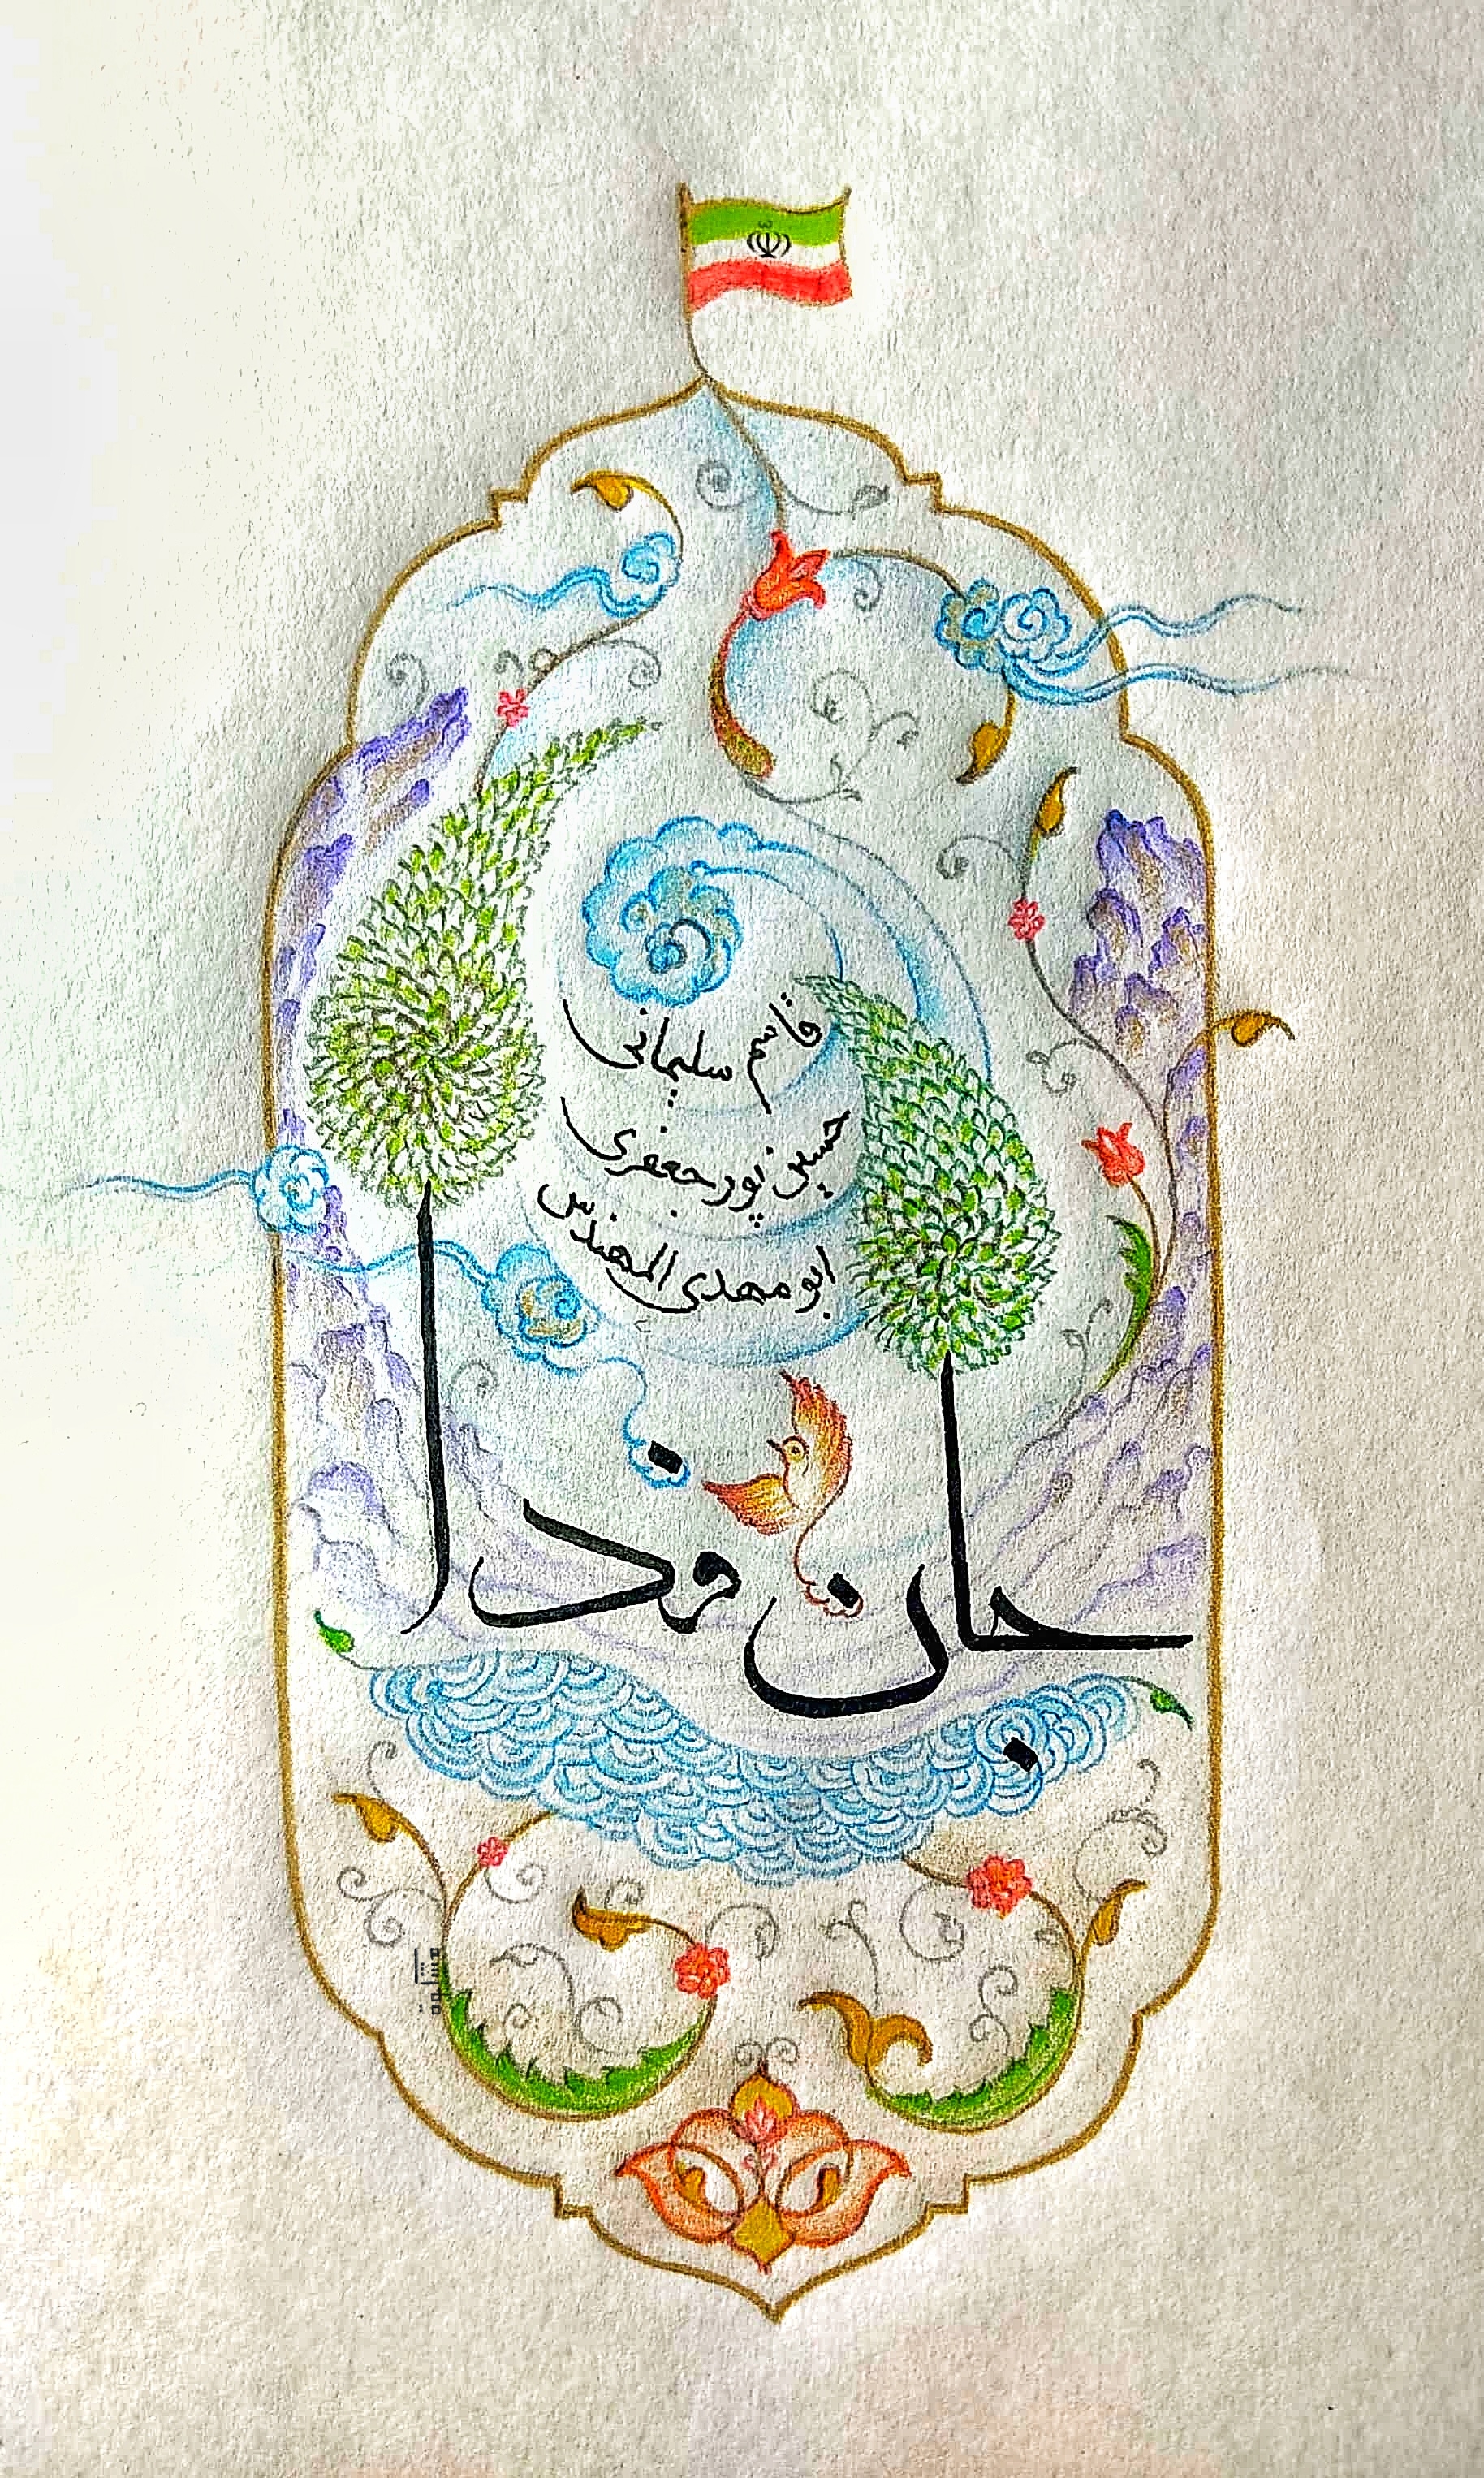 قاسم سلیمانی
حسین پورجعفری
ابومهدی المهندس
جان فدا